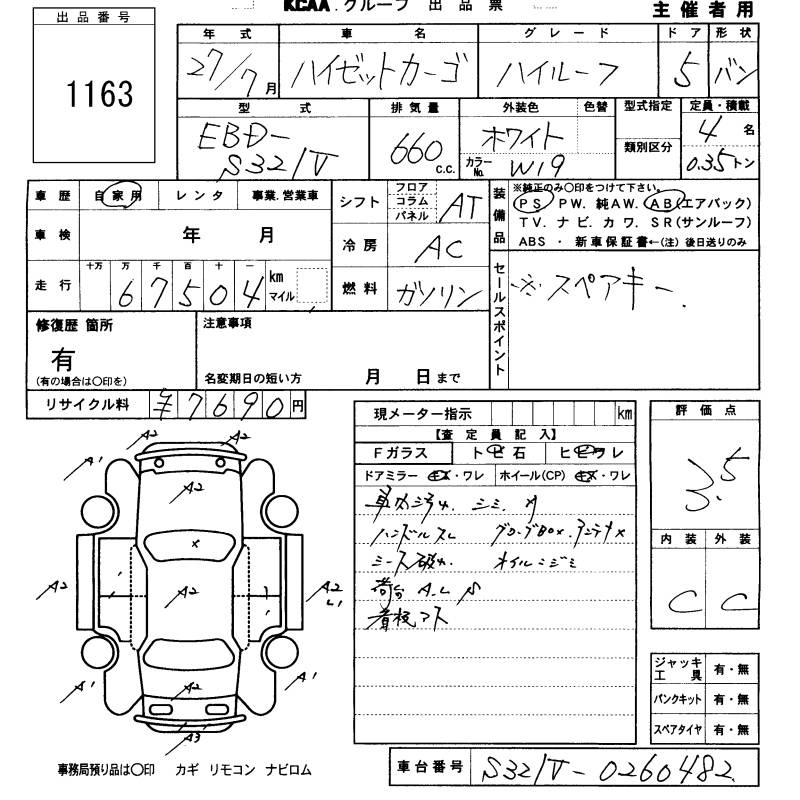 KCAA グループ 出品票
主催者用
出品番号
1163
年式 車名 グレード ドア 形状
27/7月 ハイゼットカーゴ ハイルーフ 5 バン
型式 排気量 外装色 色替 型式指定 定員・積載
EBD-S321V 660 c.c. ホワイト カラーNo. W19 類別区分 4名 0.35トン
車歴 自家用 レンタ 事業.営業車
シフト フロア コラム パネル AT
装備品 ※純正のみ〇印をつけて下さい。
PS PW. 純AW. AB(エアバック)
TV. ナビ. カワ. SR(サンルーフ)
ABS ・ 新車保証書←(注) 後日送りのみ
車検 年 月
冷房 AC
走行 十万 万 千 百 十 一
67504 km マイル
燃料 ガソリン
セールスポイント ※スペアキー.
修復歴 箇所
有
(有の場合は〇印を)
注意事項
名変期日の短い方 月 日まで
リサイクル料 ¥7690円
現メーター指示 km
【査定員記入】
Fガラス トビ石 ヒビワレ
ドアミラー キズ・ワレ ホイール(CP) キズ・ワレ
車内汚れ. シミ.
ハンドルスレ グローブBOX.アンテナ×
シース破れ. オイルニジミ
荷台 A.L
看板アト
評価点
3.5
内装 外装
C C
ジャッキ工具 有・無
パンクキット 有・無
スペアタイヤ 有・無
A2 A2
A1 A2 A1
×
A2 A2 A2
L1
A1 A2 A1
A3
事務局預り品は〇印 カギ リモコン ナビロム
車台番号 S321V-0260482